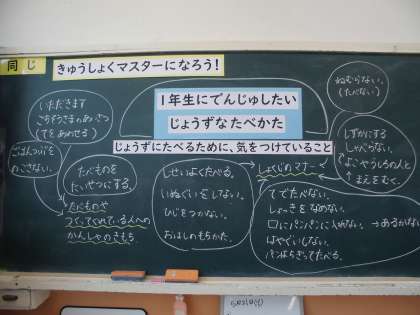 同じ
きゅうしょくマスターになろう!
1年生にでんじゅしたい
じょうずなたべかた
じょうずにたべるために、気をつけていること
いただきます
ごちそうさまのあいさつ
(てをあわせる)
ごはんつぶを
のこさない。
たべものを
たいせつにする。
たべものや
つくってくれている人への
かんしゃのきもち
しせいよくたべる。
いねぐいをしない。
ひじをつかない。
おはしのもちかた。
しょくじのマナー
ねむらない。
(たべない)
しずかにする
しゃべらない。
よこやうしろの人と
↑まえをむく。
てでたべない。
しょっきをなめない。
口にパンパンに入れない。→あるかない
はやぐいしない。
パンはちぎってたべる。